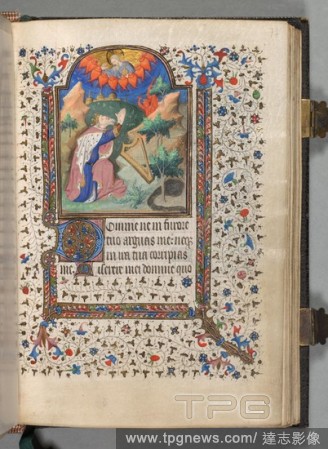 Domine ne in furore
tuo arguas me: neq3
in ira tua corripias
me. Miserere mei domine quo
TPG
www.tpgnews.com/ 達志影像